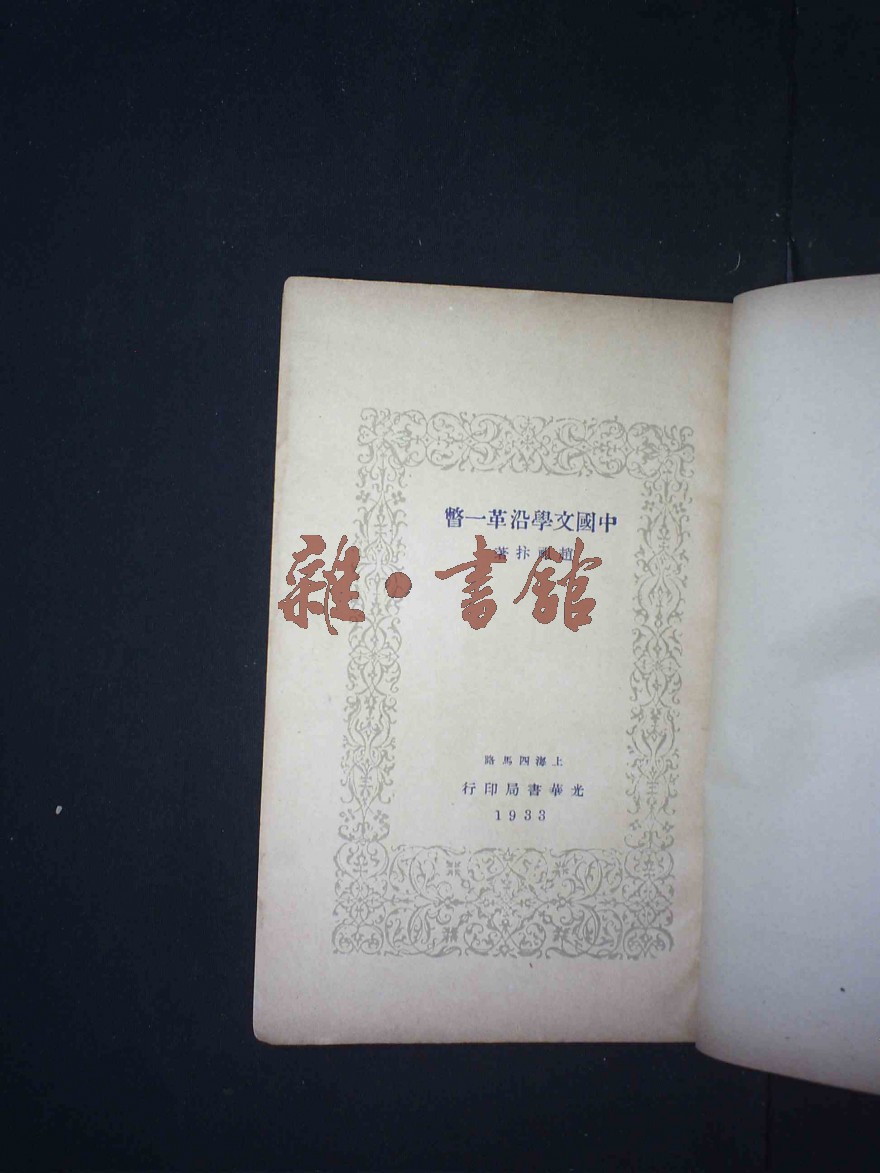 中國文學沿革一瞥
趙祖抃著
雜·書館
上海四馬路
光華書局印行
1933